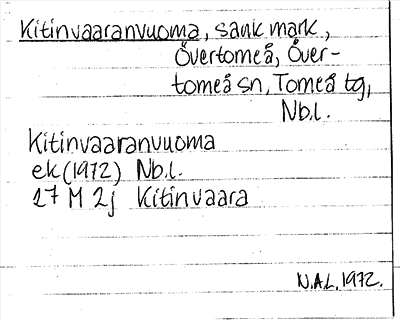 Kitinvaaranvuoma, sank mark.,
Övertomeå, Över-
tomeå sn, Tomeå tg,
Nb.l.
Kitinvaaranvuoma
ek (1972) Nb.l.
27 M 2j Kitinvaara
N.Å.L. 1972.